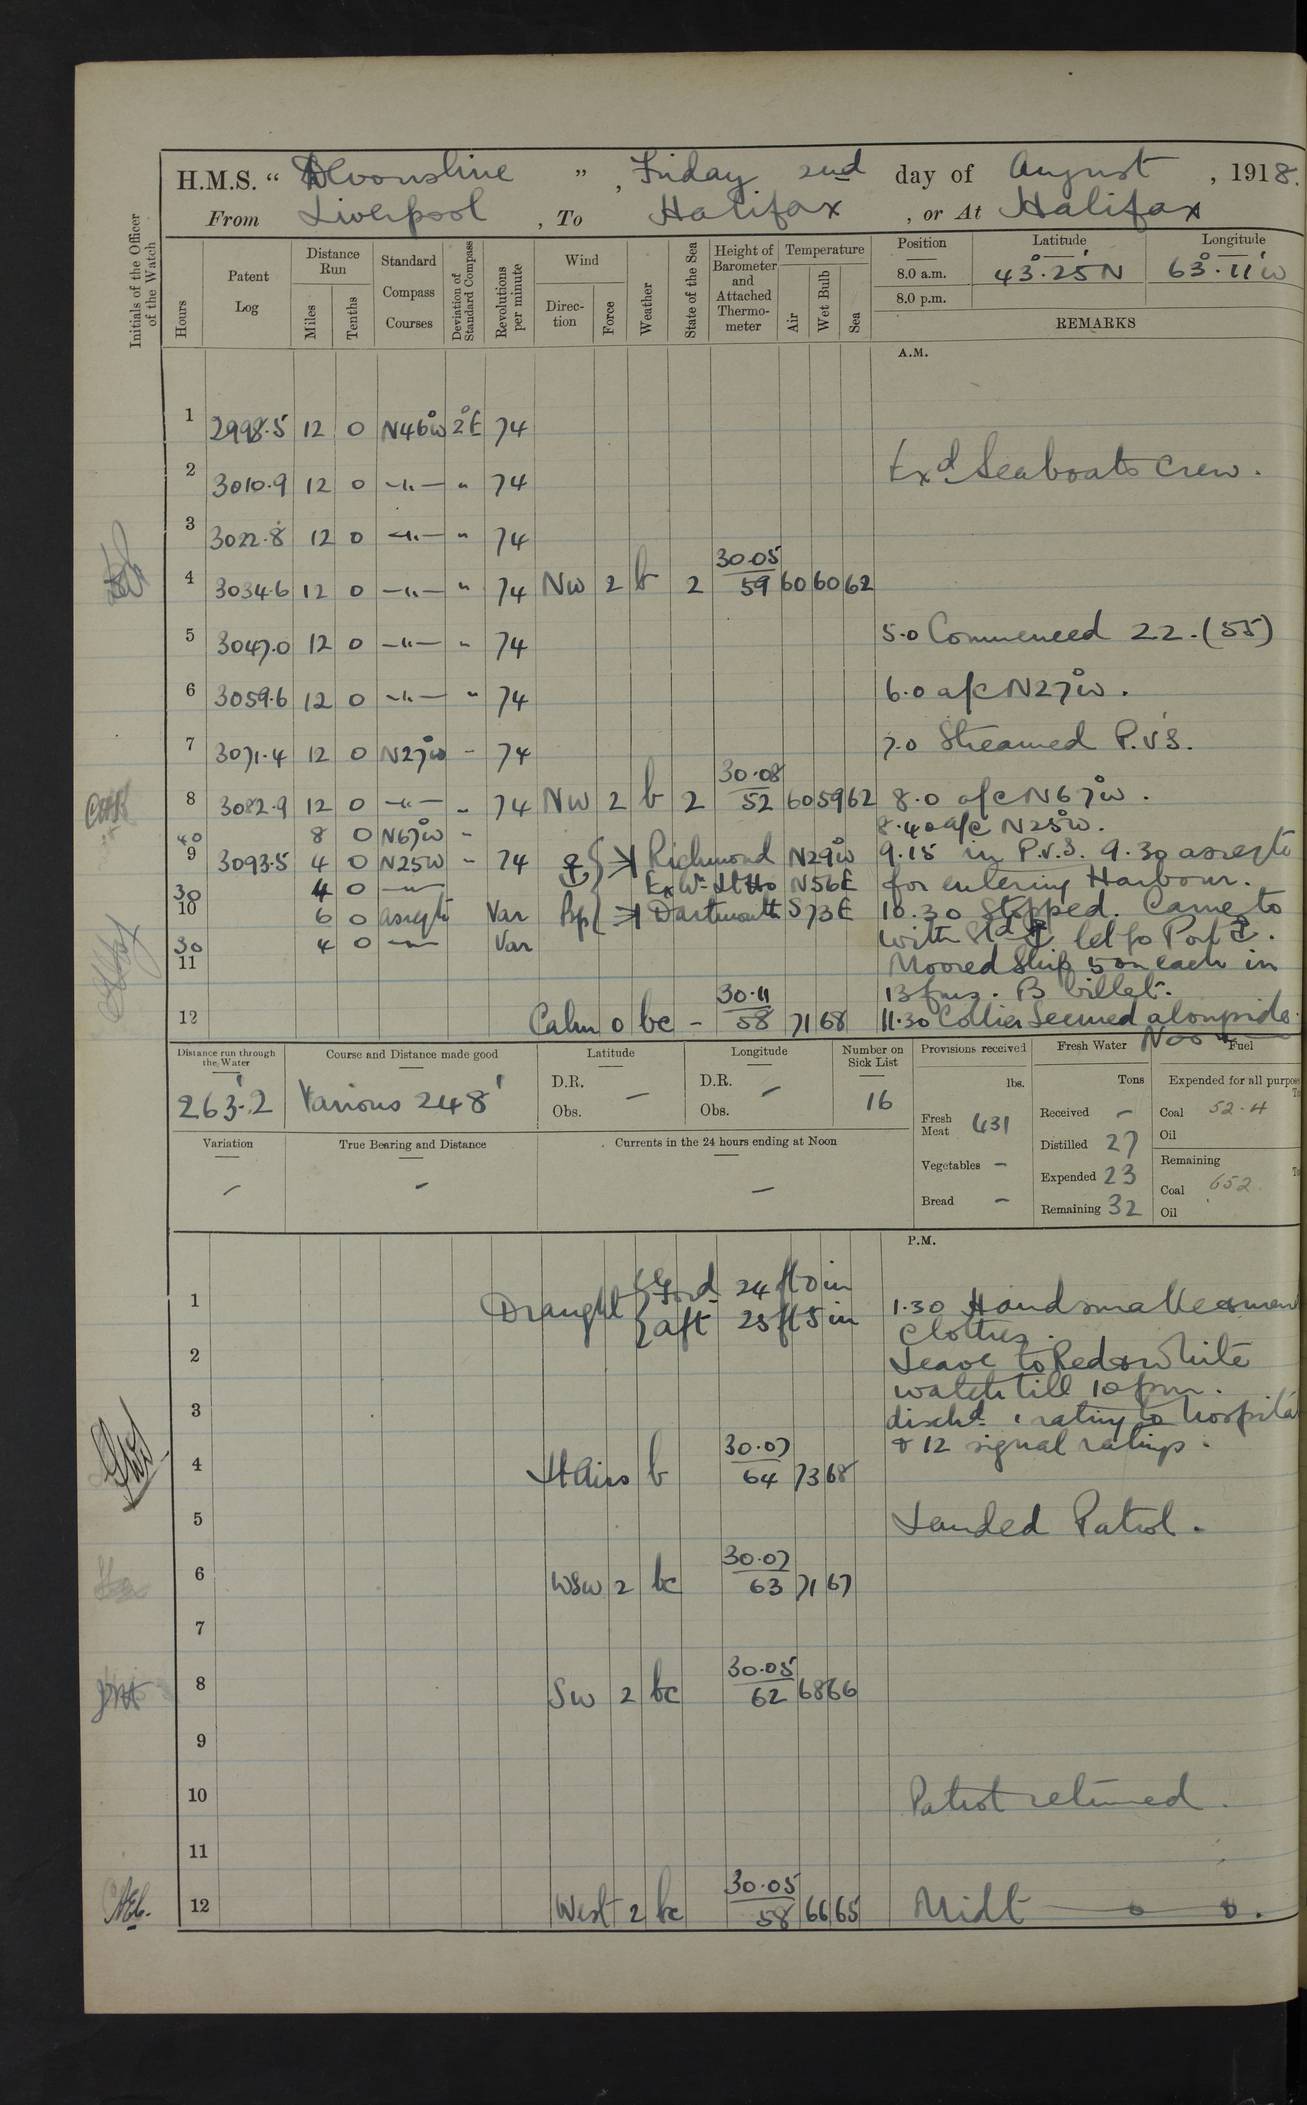 H.M.S. “ Devonshire ” , Friday 2nd day of August , 1918.
From Liverpool , To Halifax , or At Halifax
Initials of the Officer of the Watch
Hours
Patent Log
Distance Run
Miles
Tenths
Standard Compass Courses
Deviation of Standard Compass
Revolutions per minute
Wind
Direction
Force
Weather
State of the Sea
Height of Barometer and Attached Thermometer
Temperature
Air
Wet Bulb
Sea
Position Latitude Longitude
8.0 a.m. 43°.25'N 63°.11'W
8.0 p.m.
REMARKS
A.M.
1 2998.5 12 0 N46°W 2°E 74
2 3010.9 12 0 —"— " 74 Exd Seaboats Crew.
3 3022.8 12 0 —"— " 74
4 3034.6 12 0 —"— " 74 NW 2 b 2 30.05 59 60 60 62
5 3047.0 12 0 —"— " 74 5.0 Commenced 22.(55)
6 3059.6 12 0 —"— " 74 6.0 a/c N27°W.
7 3071.4 12 0 N27°W - 74 7.0 Streamed P.V's.
8 3082.9 12 0 —"— " 74 NW 2 b 2 30.08 52 60 59 62 8.0 a/c N67°W.
40 8 0 N67°W - 8.40 a/c N25°W.
9 3093.5 4 0 N25W - 74 Richmond N29°W 9.15 in P.V.S. 9.30 as reqte
30 4 0 —"— Ex Wn Lt Ho N56E for entering Harbour.
10 6 0 as reqte Var Dartmouth S73E 10.30 Stopped. Came to
30 4 0 —"— Var with Std let go Port
11 Moored Ship 5 on each in
13 fms. B billet.
12 Calm 0 bc - 30.11 58 71 68 11.30 Collier Secured alongside.
Noon
Distance run through the Water
263'.2
Course and Distance made good
Various 248'
Latitude
D.R. —
Obs.
Longitude
D.R. —
Obs.
Number on Sick List
16
Provisions received
lbs.
Fresh Meat 431
Vegetables —
Bread —
Fresh Water
Tons
Received —
Distilled 27
Expended 23
Remaining 32
Fuel
Expended for all purpose
Coal 52.4
Oil
Remaining
Coal 652
Oil
Variation
—
True Bearing and Distance
—
Currents in the 24 hours ending at Noon
—
P.M.
Draught { Ford 24 ft 0 in
{ aft 25 ft 5 in
1 1.30 Hands make & mend
clothes.
2 Leave to Red & White
watch till 10 pm.
3 dischd 1 rating to hospital
& 12 signal ratings.
4 Lt Airs b 30.07 64 73 68
5 Landed Patrol.
6 WSW 2 bc 30.07 63 71 67
7
8 SW 2 bc 30.05 62 68 66
9
10 Patrol returned.
11
12 West 2 bc 30.05 58 66 65 Midt